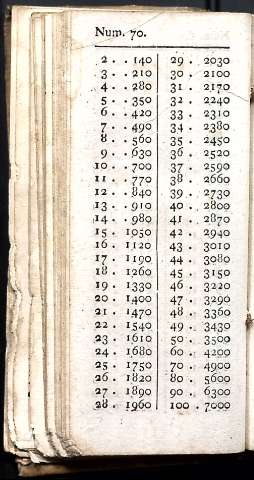 Num. 70.
2 . . 140 29 . . 2030
3 . . 210 30 . . 2100
4 . . 280 31 . . 2170
5 . . 350 32 . . 2240
6 . . 420 33 . . 2310
7 . . 490 34 . . 2380
8 . . 560 35 . . 2450
9 . . 630 36 . . 2520
10 . . 700 37 . . 2590
11 . . 770 38 . . 2660
12 . . 840 39 . . 2730
13 . . 910 40 . . 2800
14 . . 980 41 . . 2870
15 . 1050 42 . . 2940
16 . 1120 43 . . 3010
17 . 1190 44 . . 3080
18 . 1260 45 . . 3150
19 . 1330 46 . . 3220
20 . 1400 47 . . 3290
21 . 1470 48 . . 3360
22 . 1540 49 . . 3430
23 . 1610 50 . . 3500
24 . 1680 60 . . 4200
25 . 1750 70 . . 4900
26 . 1820 80 . . 5600
27 . 1890 90 . . 6300
28 . 1960 100 . . 7000